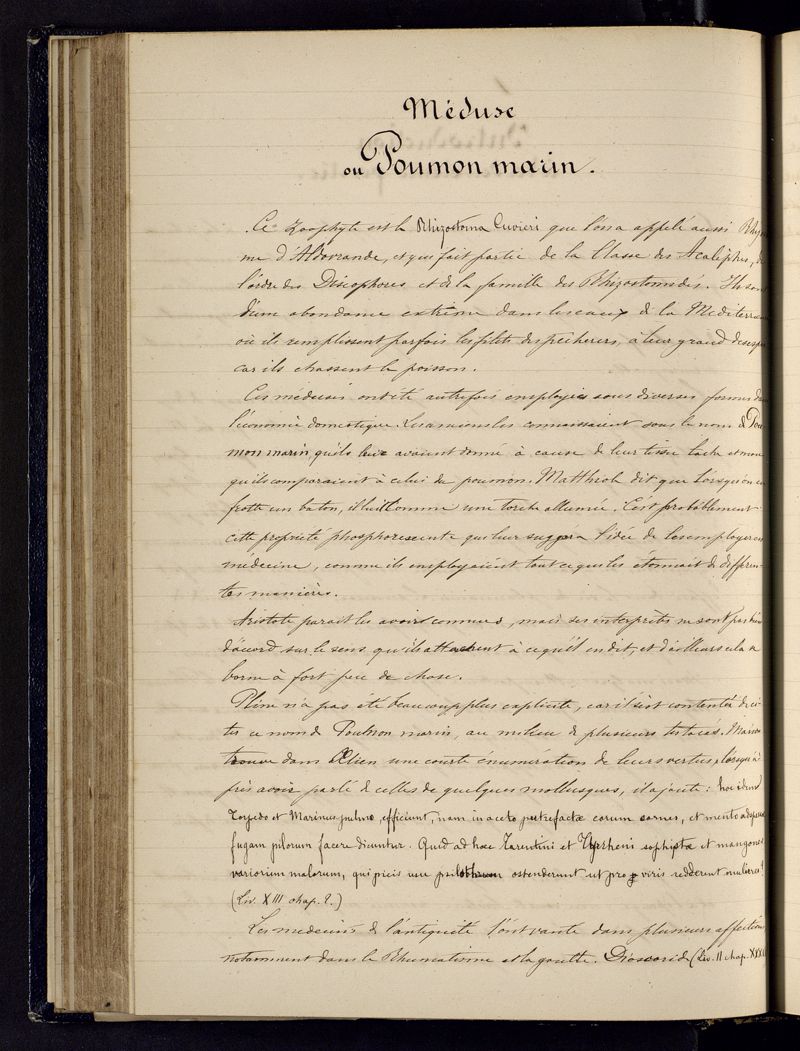 Méduse
ou Poumon marin.
Ce Zoophyte est le Rhizostoma Cuvieri que l'on a appelé aussi Rhizos
me d'Aldovrande, et qui fait partie de la Classe des Acalèphes, de
l'ordre des Discophores et de la famille des Rhizostomidés. Ils sont
d'une abondance extrême dans les eaux de la Méditerran
où ils remplissent parfois les filets des pêcheurs, à leur grand desesp
car ils chassent le poisson.
Ces méduses ont été autrefois employées sous diverses formes da
l'économie domestique. Les anciens les connaissaient sous le nom de Pou
mon marin, qu'ils leur avaient donné à cause de leur tissu lache et mou
qu'ils comparaient à celui du poumon. Matthiole dit que Lorsqu'on en
frotte un baton, il luit comme une torche allumée. C'est probablement
cette propriété phosphorescente qui leur suggéra l'idée de les employer en
médecine, comme ils employaient tout ce qui les étonnait de différen-
tes manières.
Aristote parait les avoir connues, mais ses interprètes ne sont pas bien
d'accord sur le sens qu'ils attachent à ce qu'il en dit, et d'ailleurs cela se
borne à fort peu de chose.
Pline n'a pas été beaucoup plus explicite, car il s'est contenté de ci-
ter ce nom de Poumon marin, au milieu de plusieurs testacés. Mais on
trouve dans Ælien une courte énumération de leurs vertus, lorsqu'a-
près avoir parlé de celles de quelques mollusques, il ajoute: hoc idem
Torpedo et Marinus pulmo, efficiunt, nam in aceto putrefactæ eorum carnes, et mento adspersæ
fugam pilorum facere dicuntur. Quid ad hæc Tarentini et Tyrrheni sophistæ et mangones
variorum malorum, qui picis usu psilothrum ostenderunt ut pro viris redderent mulieres!
(Liv. XIII chap. 2.)
Les medecins de l'antiquité l'ont vanté dans plusieurs affections
notamment dans le Rhumatisme et la goutte. Dioscoride (Liv. II chap. XXXI